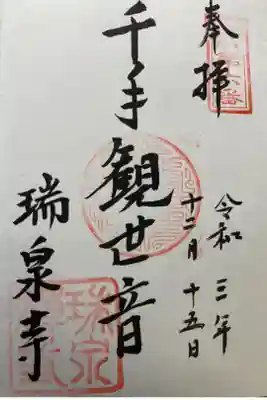 奉拝
令和三年
十二月十五日
千手観世音
瑞泉寺